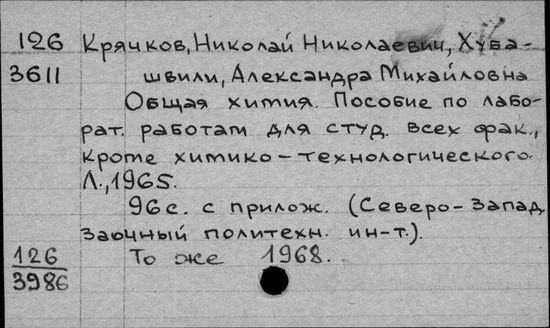 126 Крячков, Николай Николаевич, Хуба-
3611 швили, Александра Михайловна
Общая химия. Пособие по лабо-
рат. работам для студ. всех фак.,
кроме химико-технологического.
Л., 1965.
96с. с прилож. (Северо-Запад.
Заочный политехн. ин-т.).
126 То же 1968.
3986